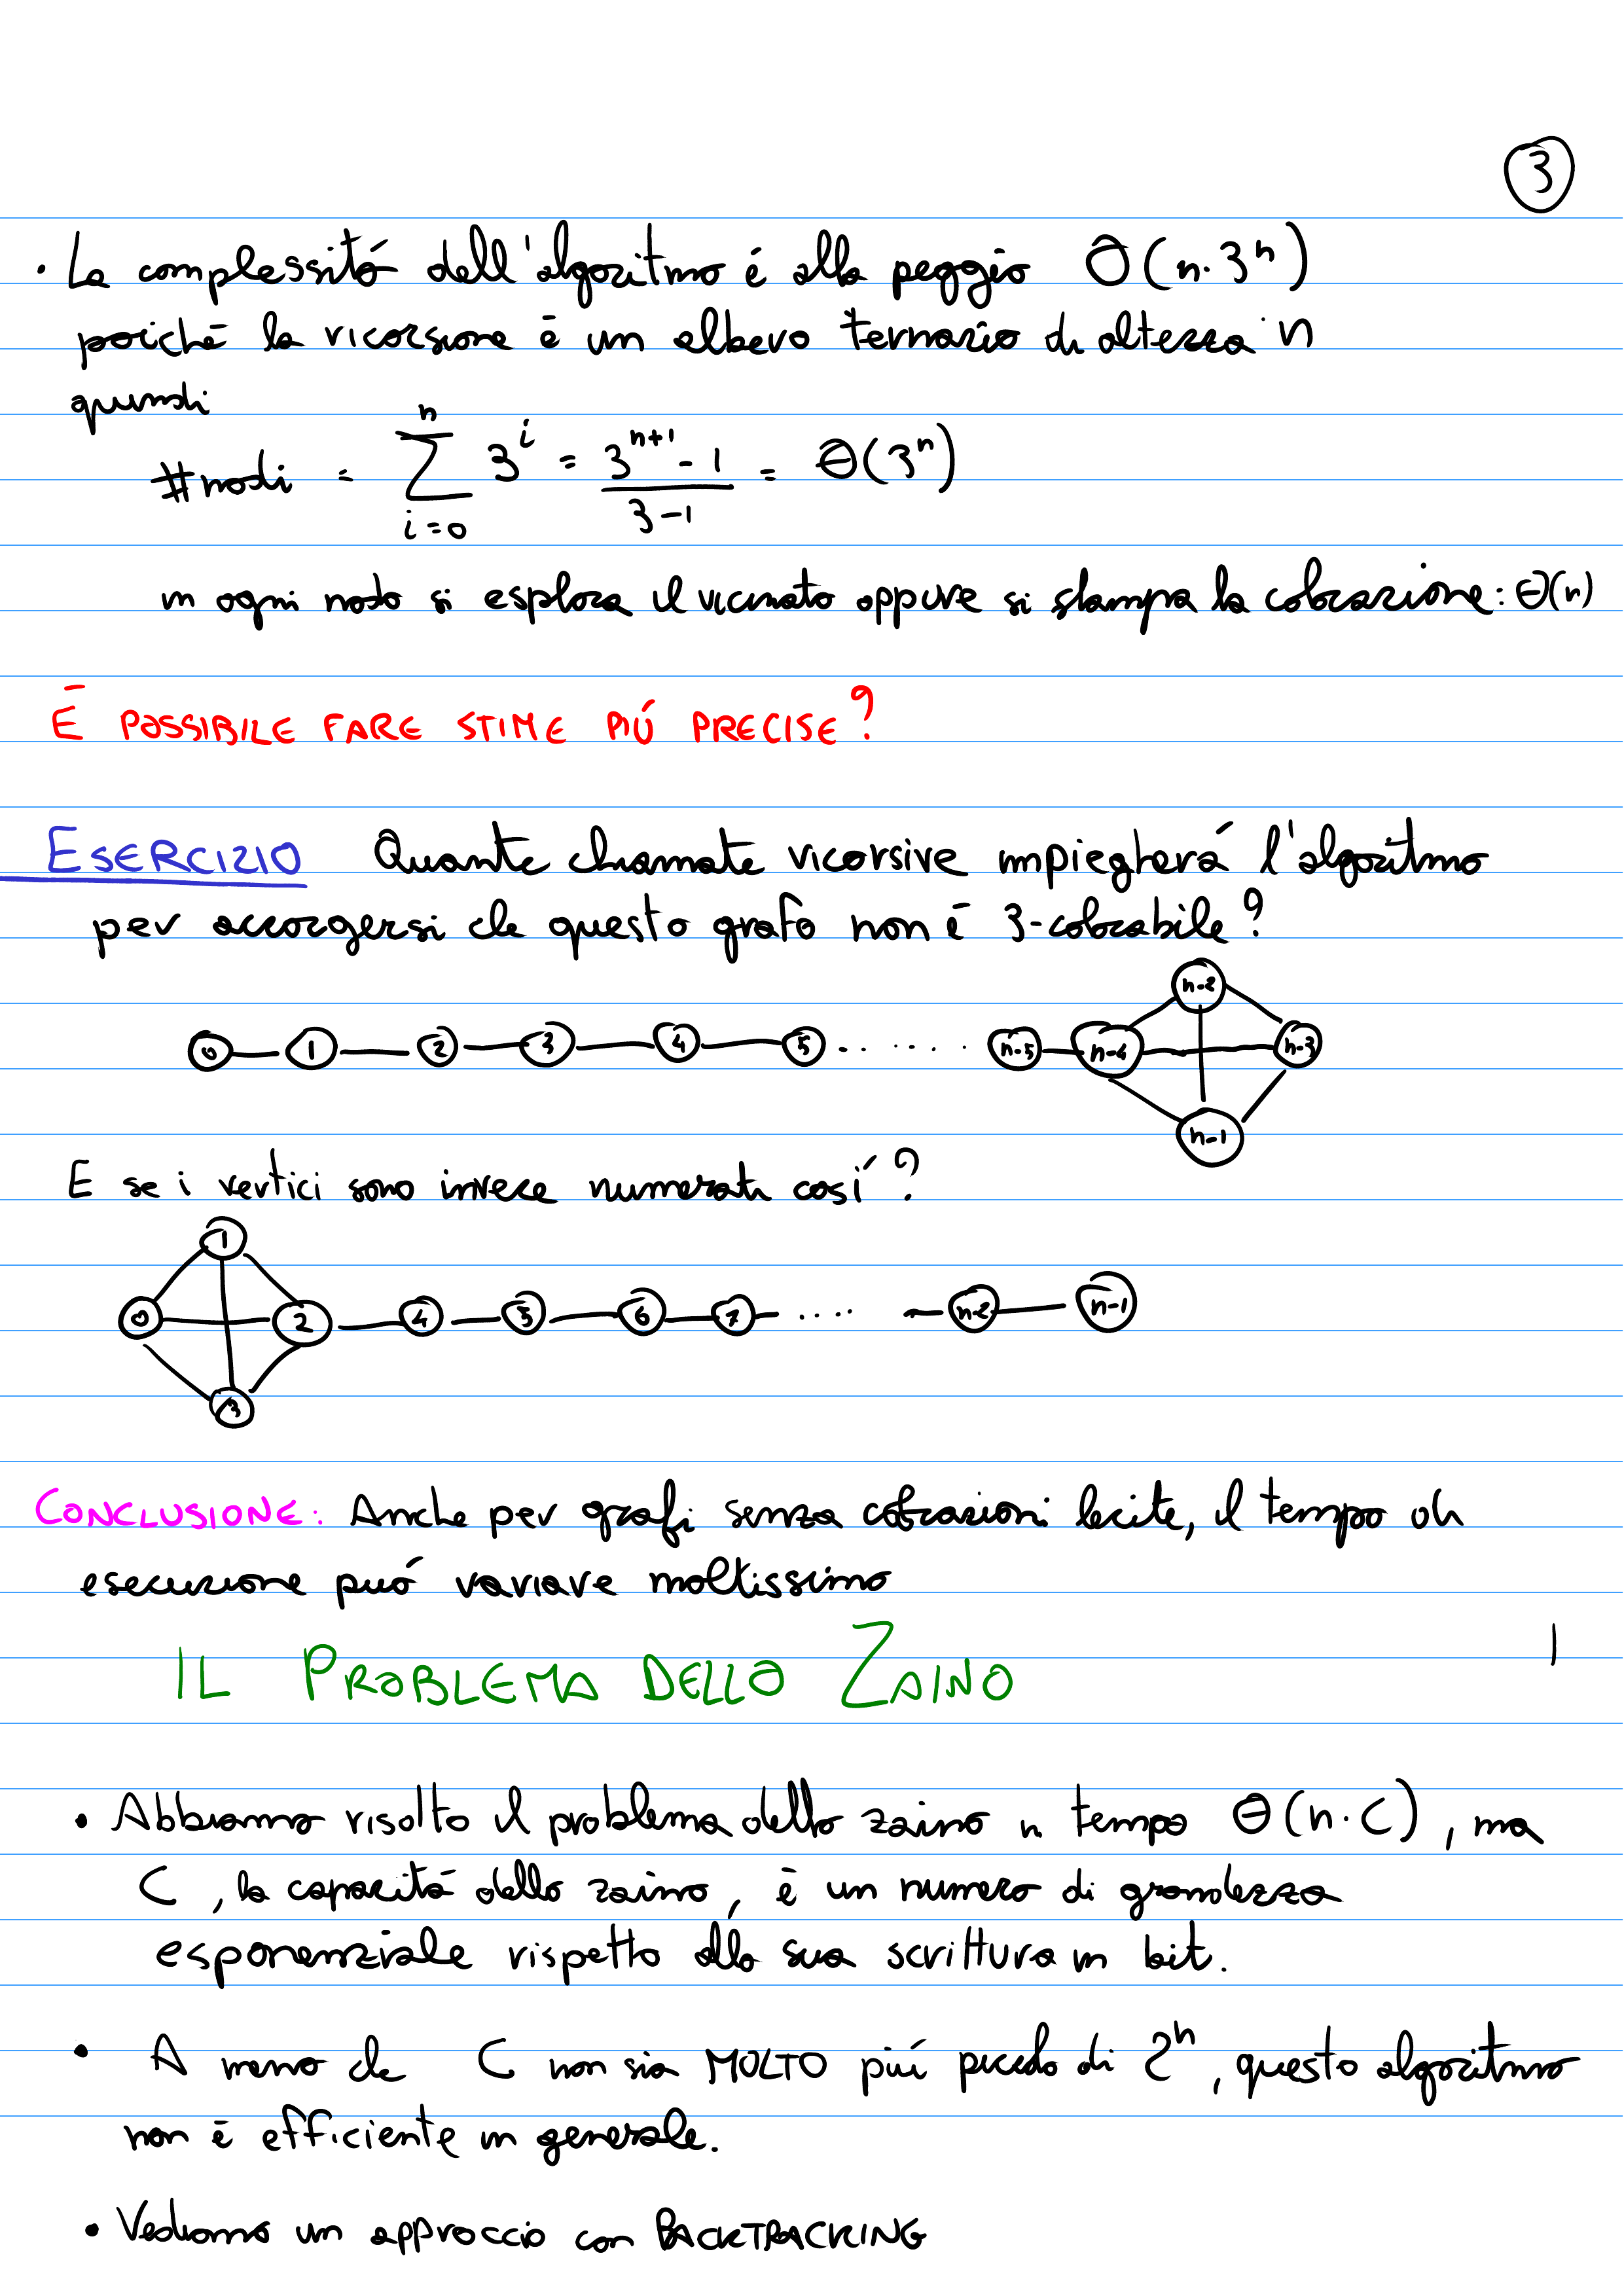 3
• La complessitá dell'algoritmo é alla peggio O(n·3ⁿ)
poiché la ricorsione é un albero ternario di altezza n
quindi
#nodi = ∑_{i=0}^{n} 3^i = (3^{n+1} - 1)/(3-1) = Θ(3ⁿ)
in ogni nodo si esplora il vicinato oppure si stampa la colorazione: Θ(n)
É POSSIBILE FARE STIME PIÚ PRECISE?
ESERCIZIO Quante chiamate ricorsive impiegherá l'algoritmo
per accorgersi che questo grafo non é 3-colorabile?
n-2
0 1 2 3 4 5 ....... n-5 n-4 n-3
n-1
E se i vertici sono invece numerati cosí?
1
0 2 4 5 6 7 .... n-2 n-1
3
CONCLUSIONE: Anche per grafi senza colorazioni lecite, il tempo di
esecuzione puó variare moltissimo
IL PROBLEMA DELLO ZAINO
• Abbiamo risolto il problema dello zaino in tempo Θ(n·C), ma
C, la capacitá dello zaino, é un numero di grandezza
esponenziale rispetto alla sua scrittura in bit.
• A meno che C non sia MOLTO piú piccolo di 2ⁿ, questo algoritmo
non é efficiente in generale.
• Vediamo un approccio con BACKTRACKING